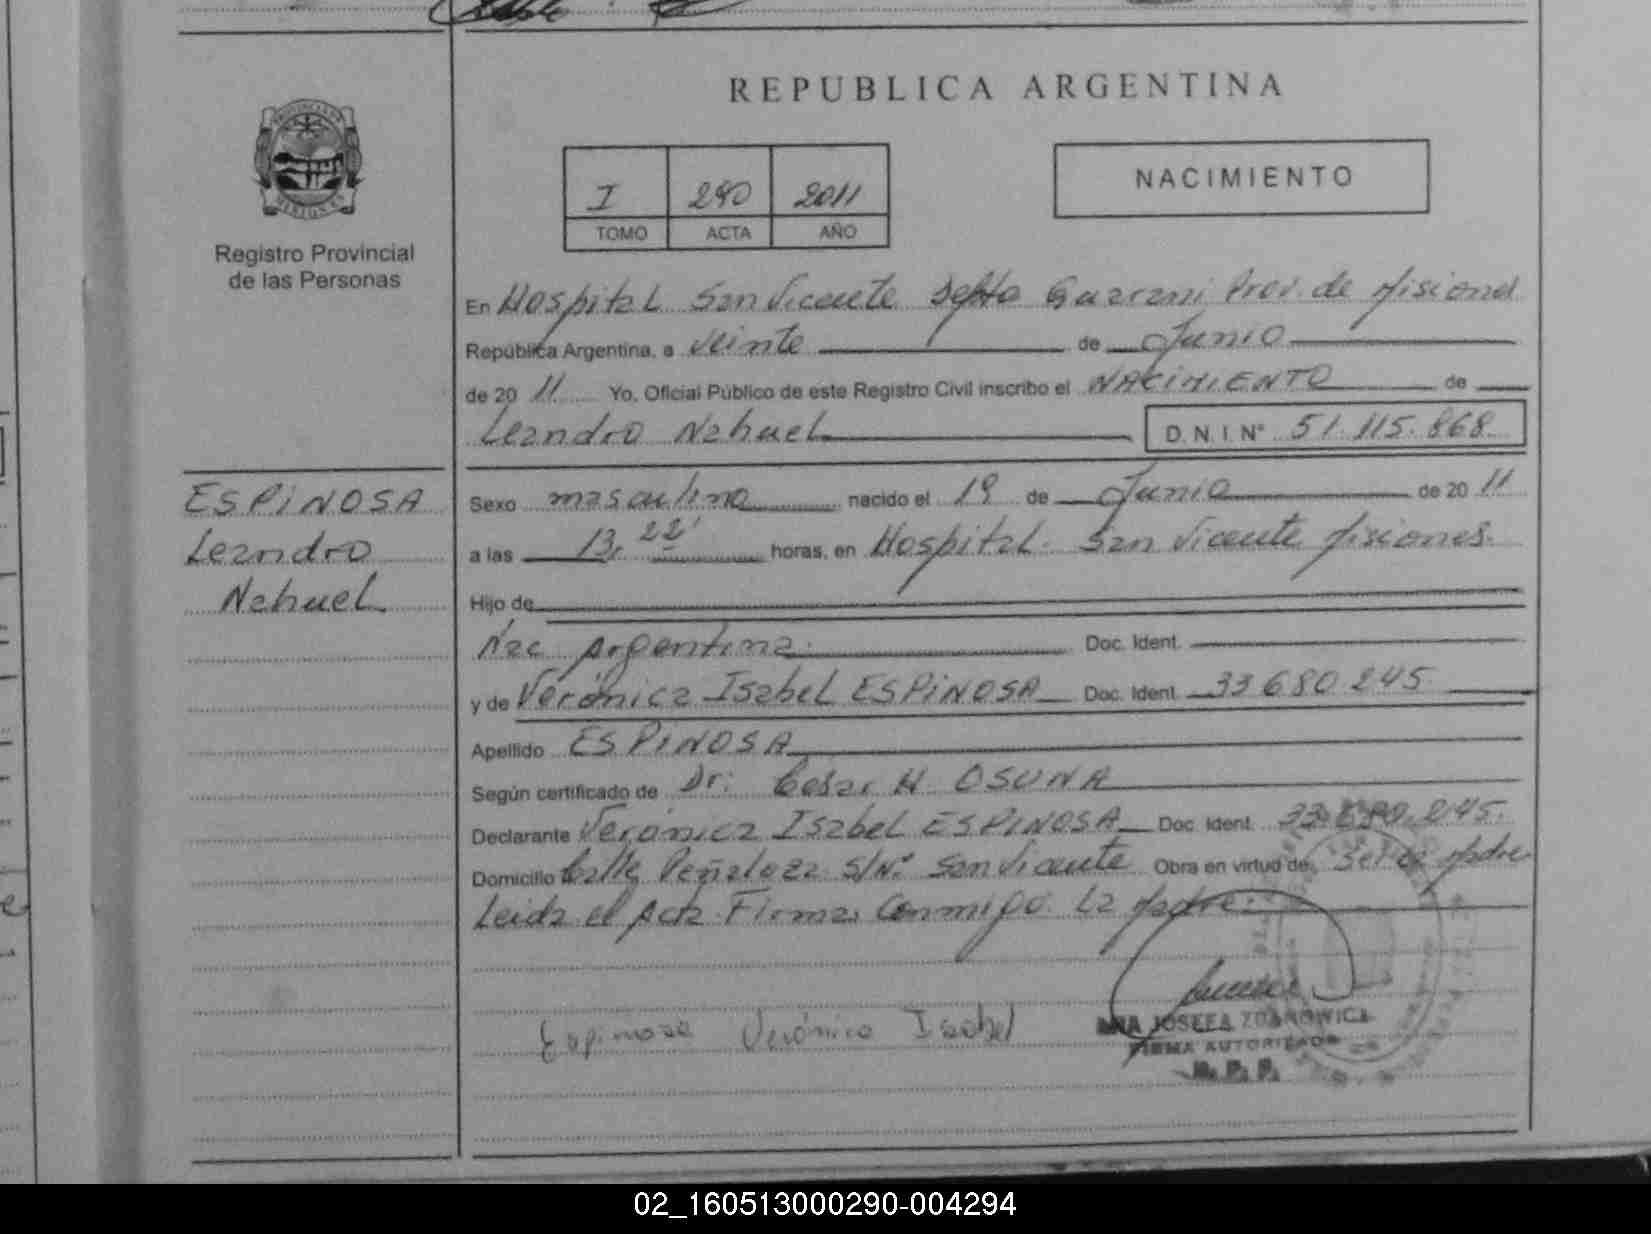 REPUBLICA ARGENTINA
I 290 2011
TOMO ACTA AÑO
NACIMIENTO
Registro Provincial
de las Personas
En Hospital San Vicente Depto Guarani Prov. de Misiones
República Argentina, a veinte de Junio
de 20 11 Yo, Oficial Público de este Registro Civil inscribo el NACIMIENTO de
Leandro Nahuel D.N.I. N° 51.115.868
ESPINOSA
Leandro
Nahuel
Sexo masculino nacido el 19 de Junio de 20 11
a las 13, 22' horas, en Hospital San Vicente Misiones.
Hijo de
Nac Argentina. Doc. Ident.
y de Verónica Isabel ESPINOSA Doc. Ident. 33680245
Apellido ESPINOSA
Según certificado de Dr: Cesar H OSUNA
Declarante Verónica Isabel ESPINOSA Doc. Ident. 33.680.245.
Domicilio Calle Peñaloza S/N° San Vicente Obra en virtud de Ser la Madre
Leida el Acta Firma Conmigo La Madre.
Espinosa Verónica Isabel
ANA JOSEFA
FIRMA AUTORIZADA
R. P. P.
02_160513000290-004294